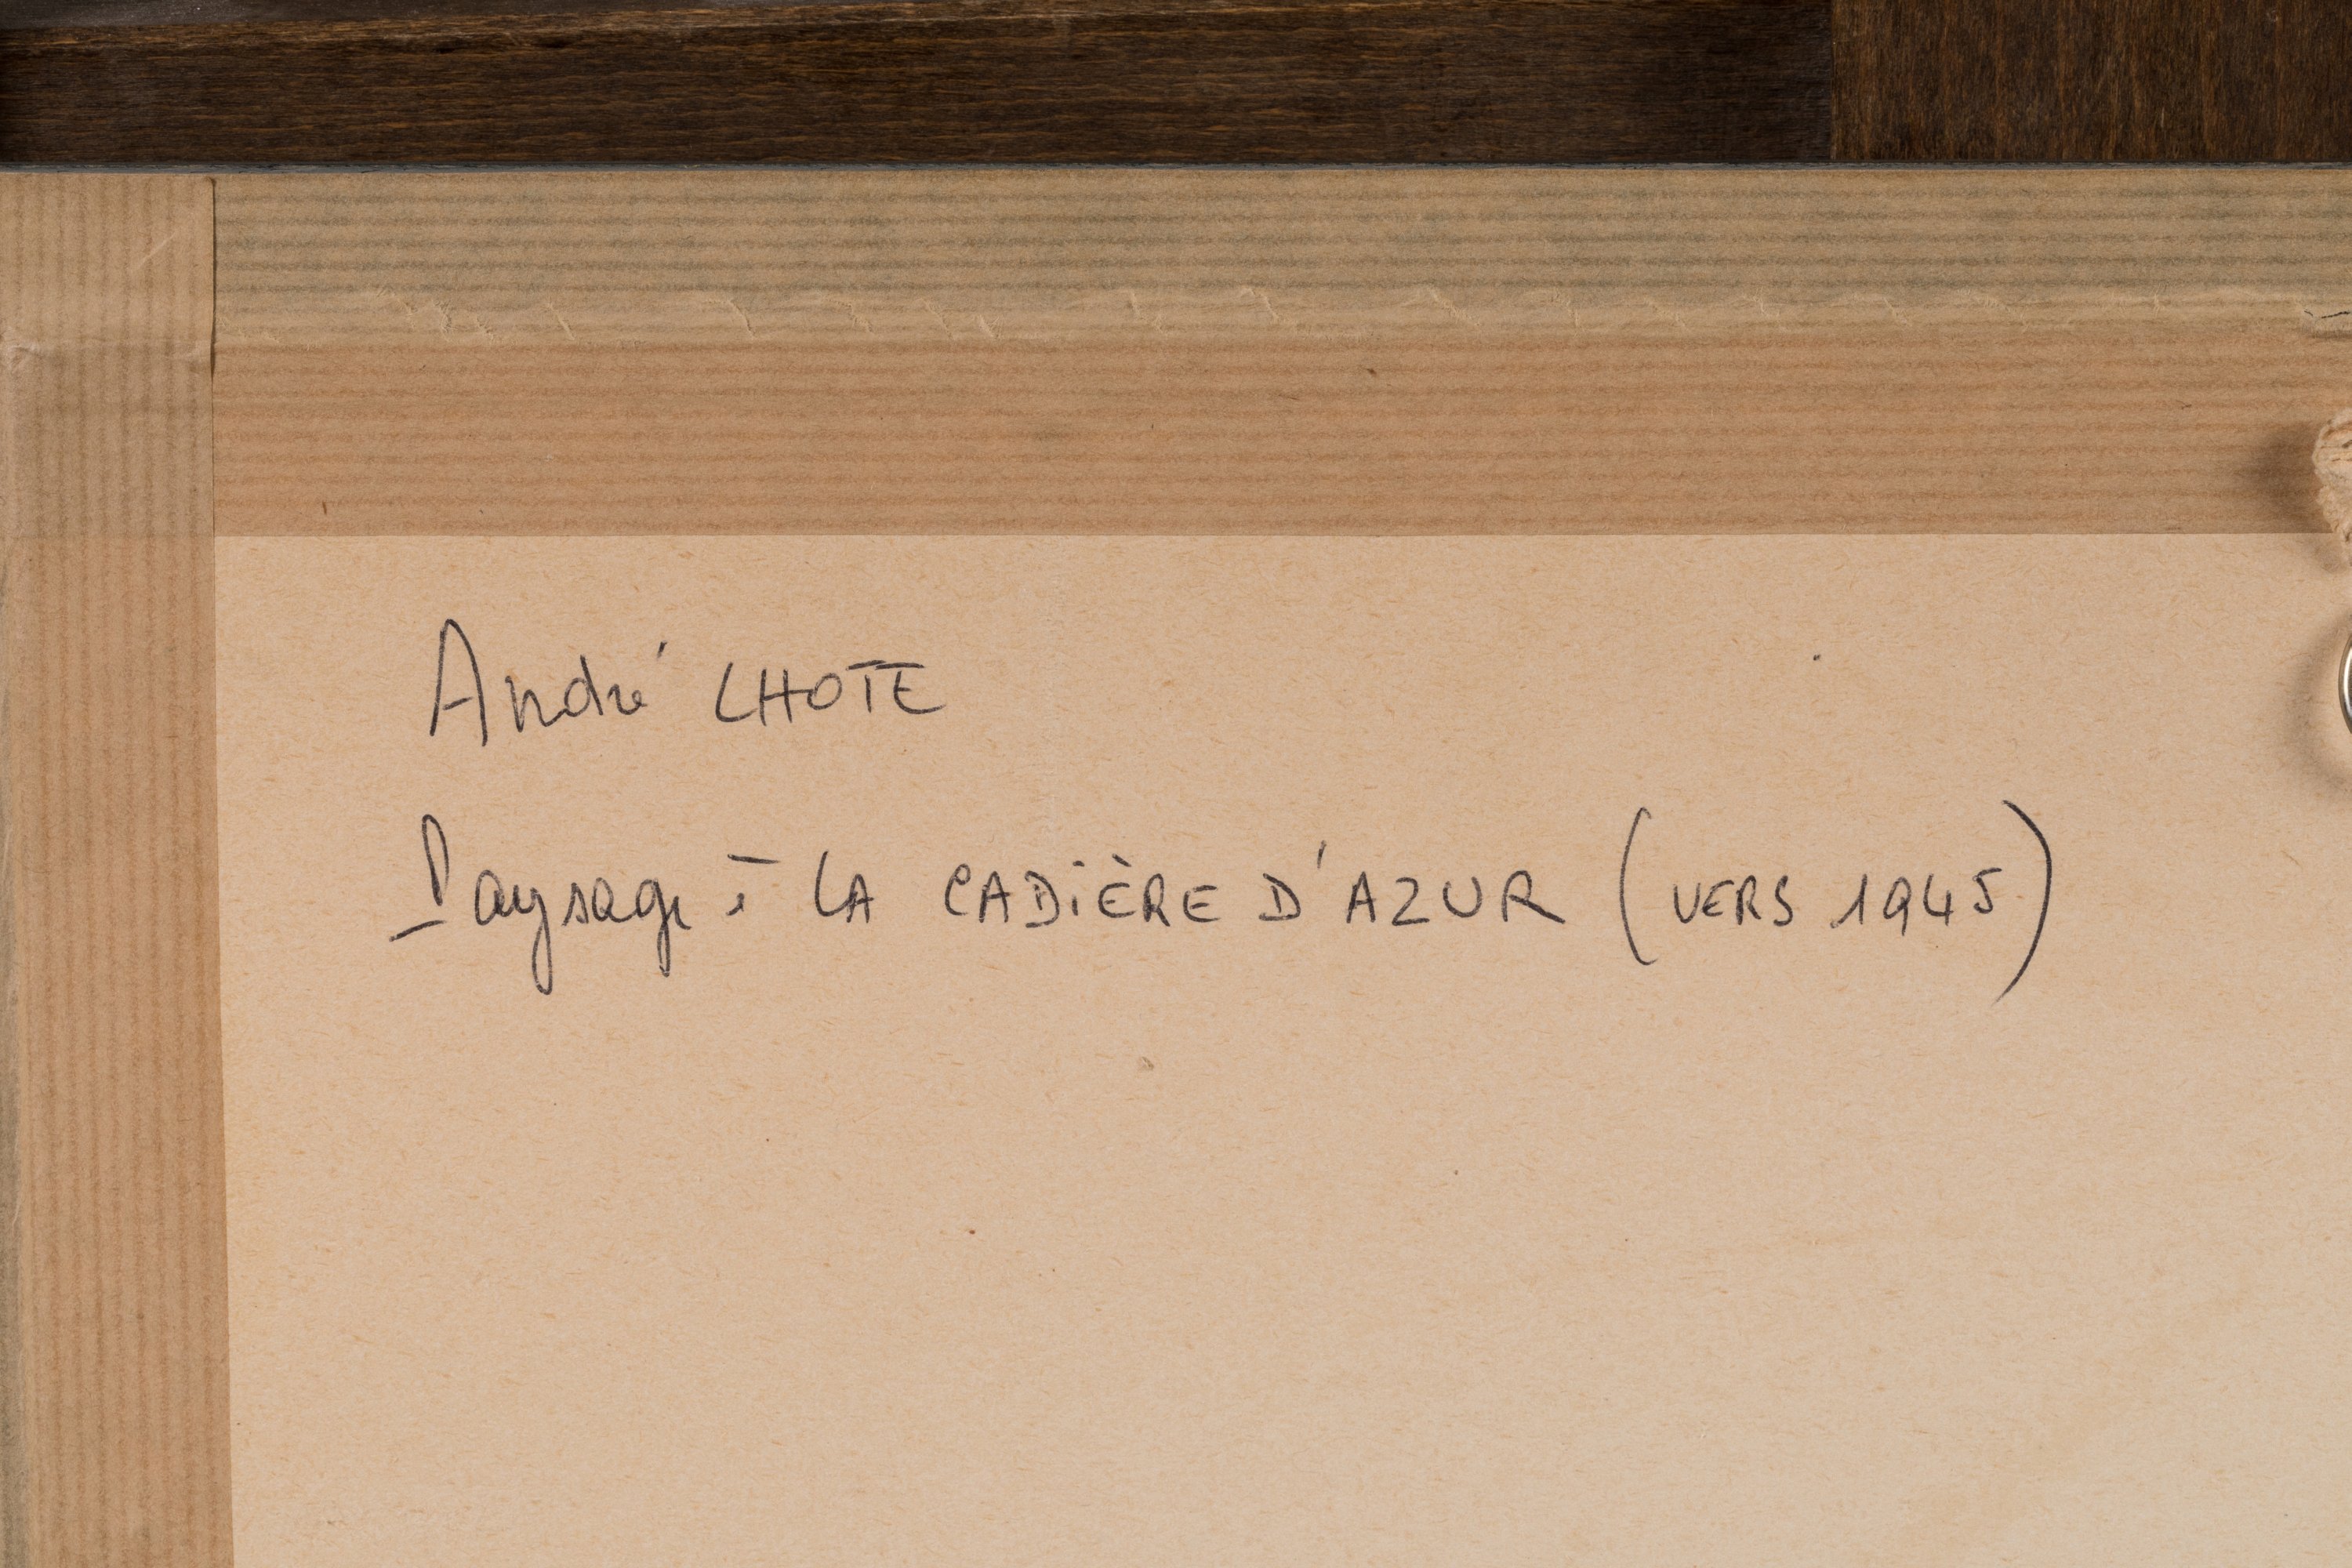 André LHOTE
Paysage à LA CADIÈRE D'AZUR (VERS 1945)